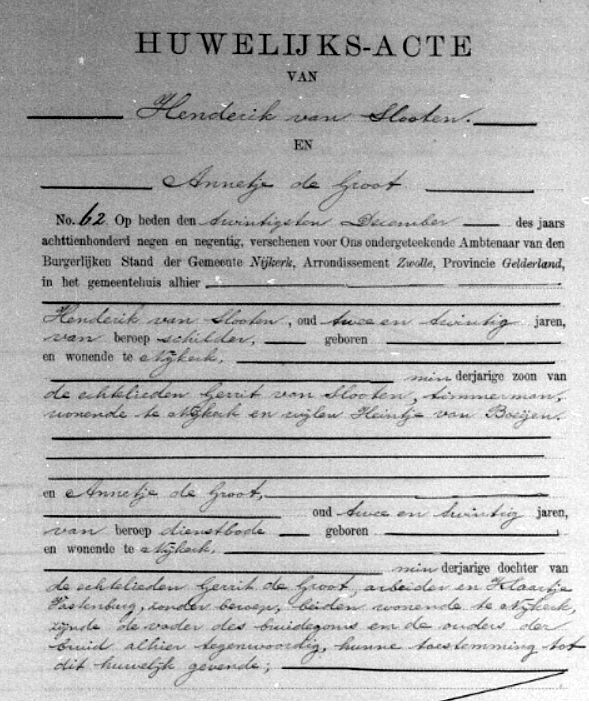 HUWELIJKS-ACTE
VAN
Henderik van Slooten.
EN
Annetje de Groot
No. 62. Op heden den twintigsten December des jaars
achttienhonderd negen en negentig, verschenen voor Ons ondergeteekende Ambtenaar van den
Burgerlijken Stand der Gemeente Nijkerk, Arrondissement Zwolle, Provincie Gelderland,
in het gemeentehuis alhier
Henderik van Slooten, oud twee en twintig jaren,
van beroep schilder, geboren
en wonende te Nijkerk,
min derjarige zoon van
de echtelieden Gerrit van Slooten, timmerman,
wonende te Nijkerk en wijlen Heintje van Boeijen.
en Annetje de Groot,
oud twee en twintig jaren,
van beroep dienstbode geboren
en wonende te Nijkerk,
min derjarige dochter van
de echtelieden Gerrit de Groot, arbeider en Klaartje
Vastenburg, zonder beroep, beiden wonende te Nijkerk,
zijnde de vader des bruidegoms en de ouders der
bruid alhier tegenwoordig, hunne toestemming tot
dit huwelijk gevende;